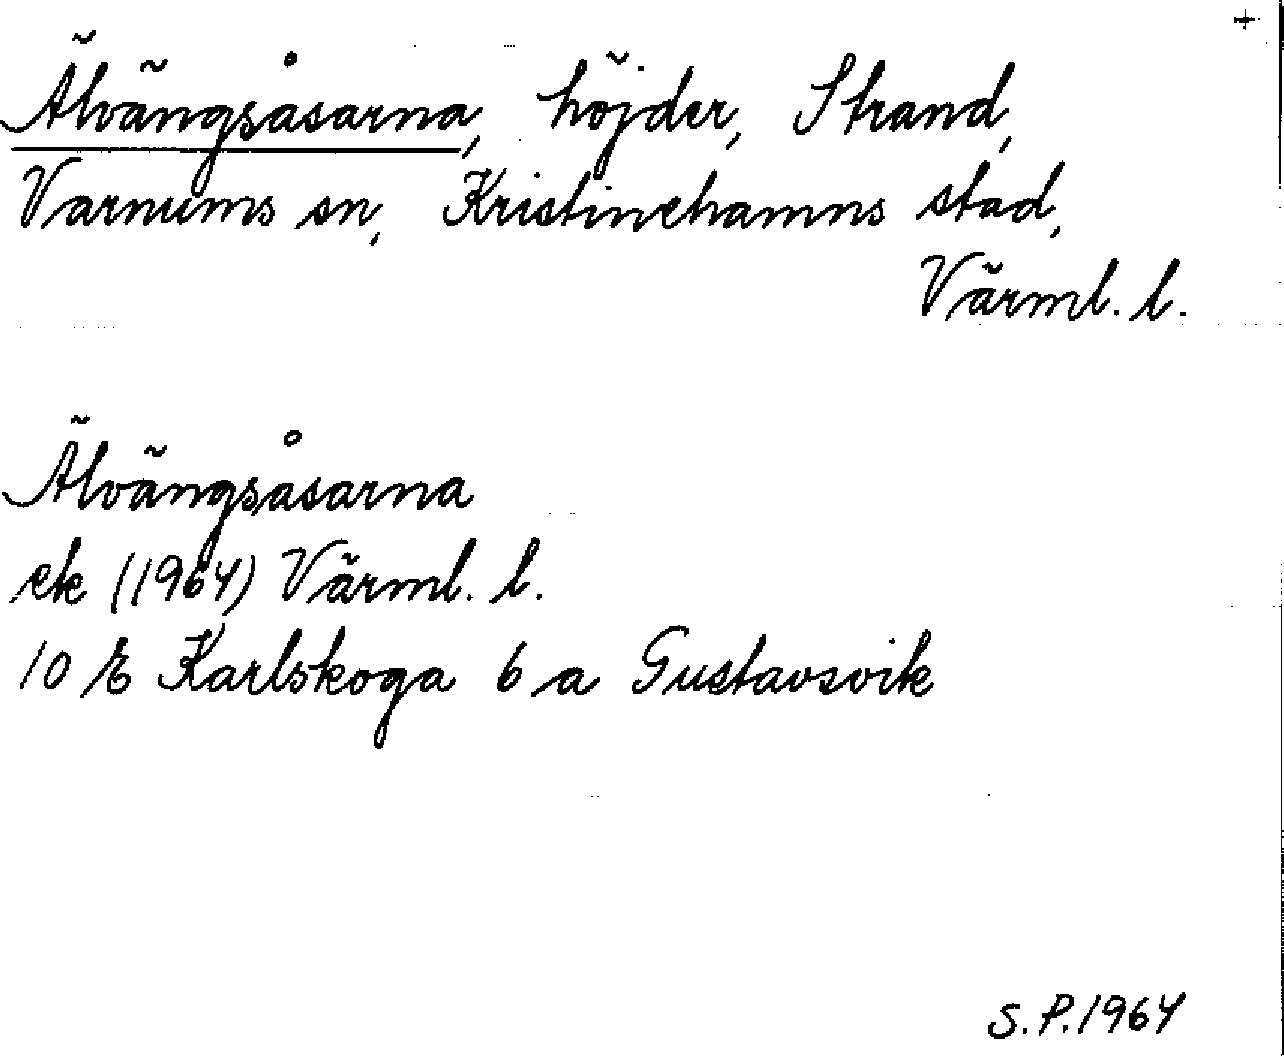 +
Älvängsåsarna, höjder, Strand,
Varnums sn, Kristinehamns stad,
Värml. l.
Älvängsåsarna
ek (1964) Värml. l.
10 E Karlskoga 6 a Gustavsvik
S.P. 1964